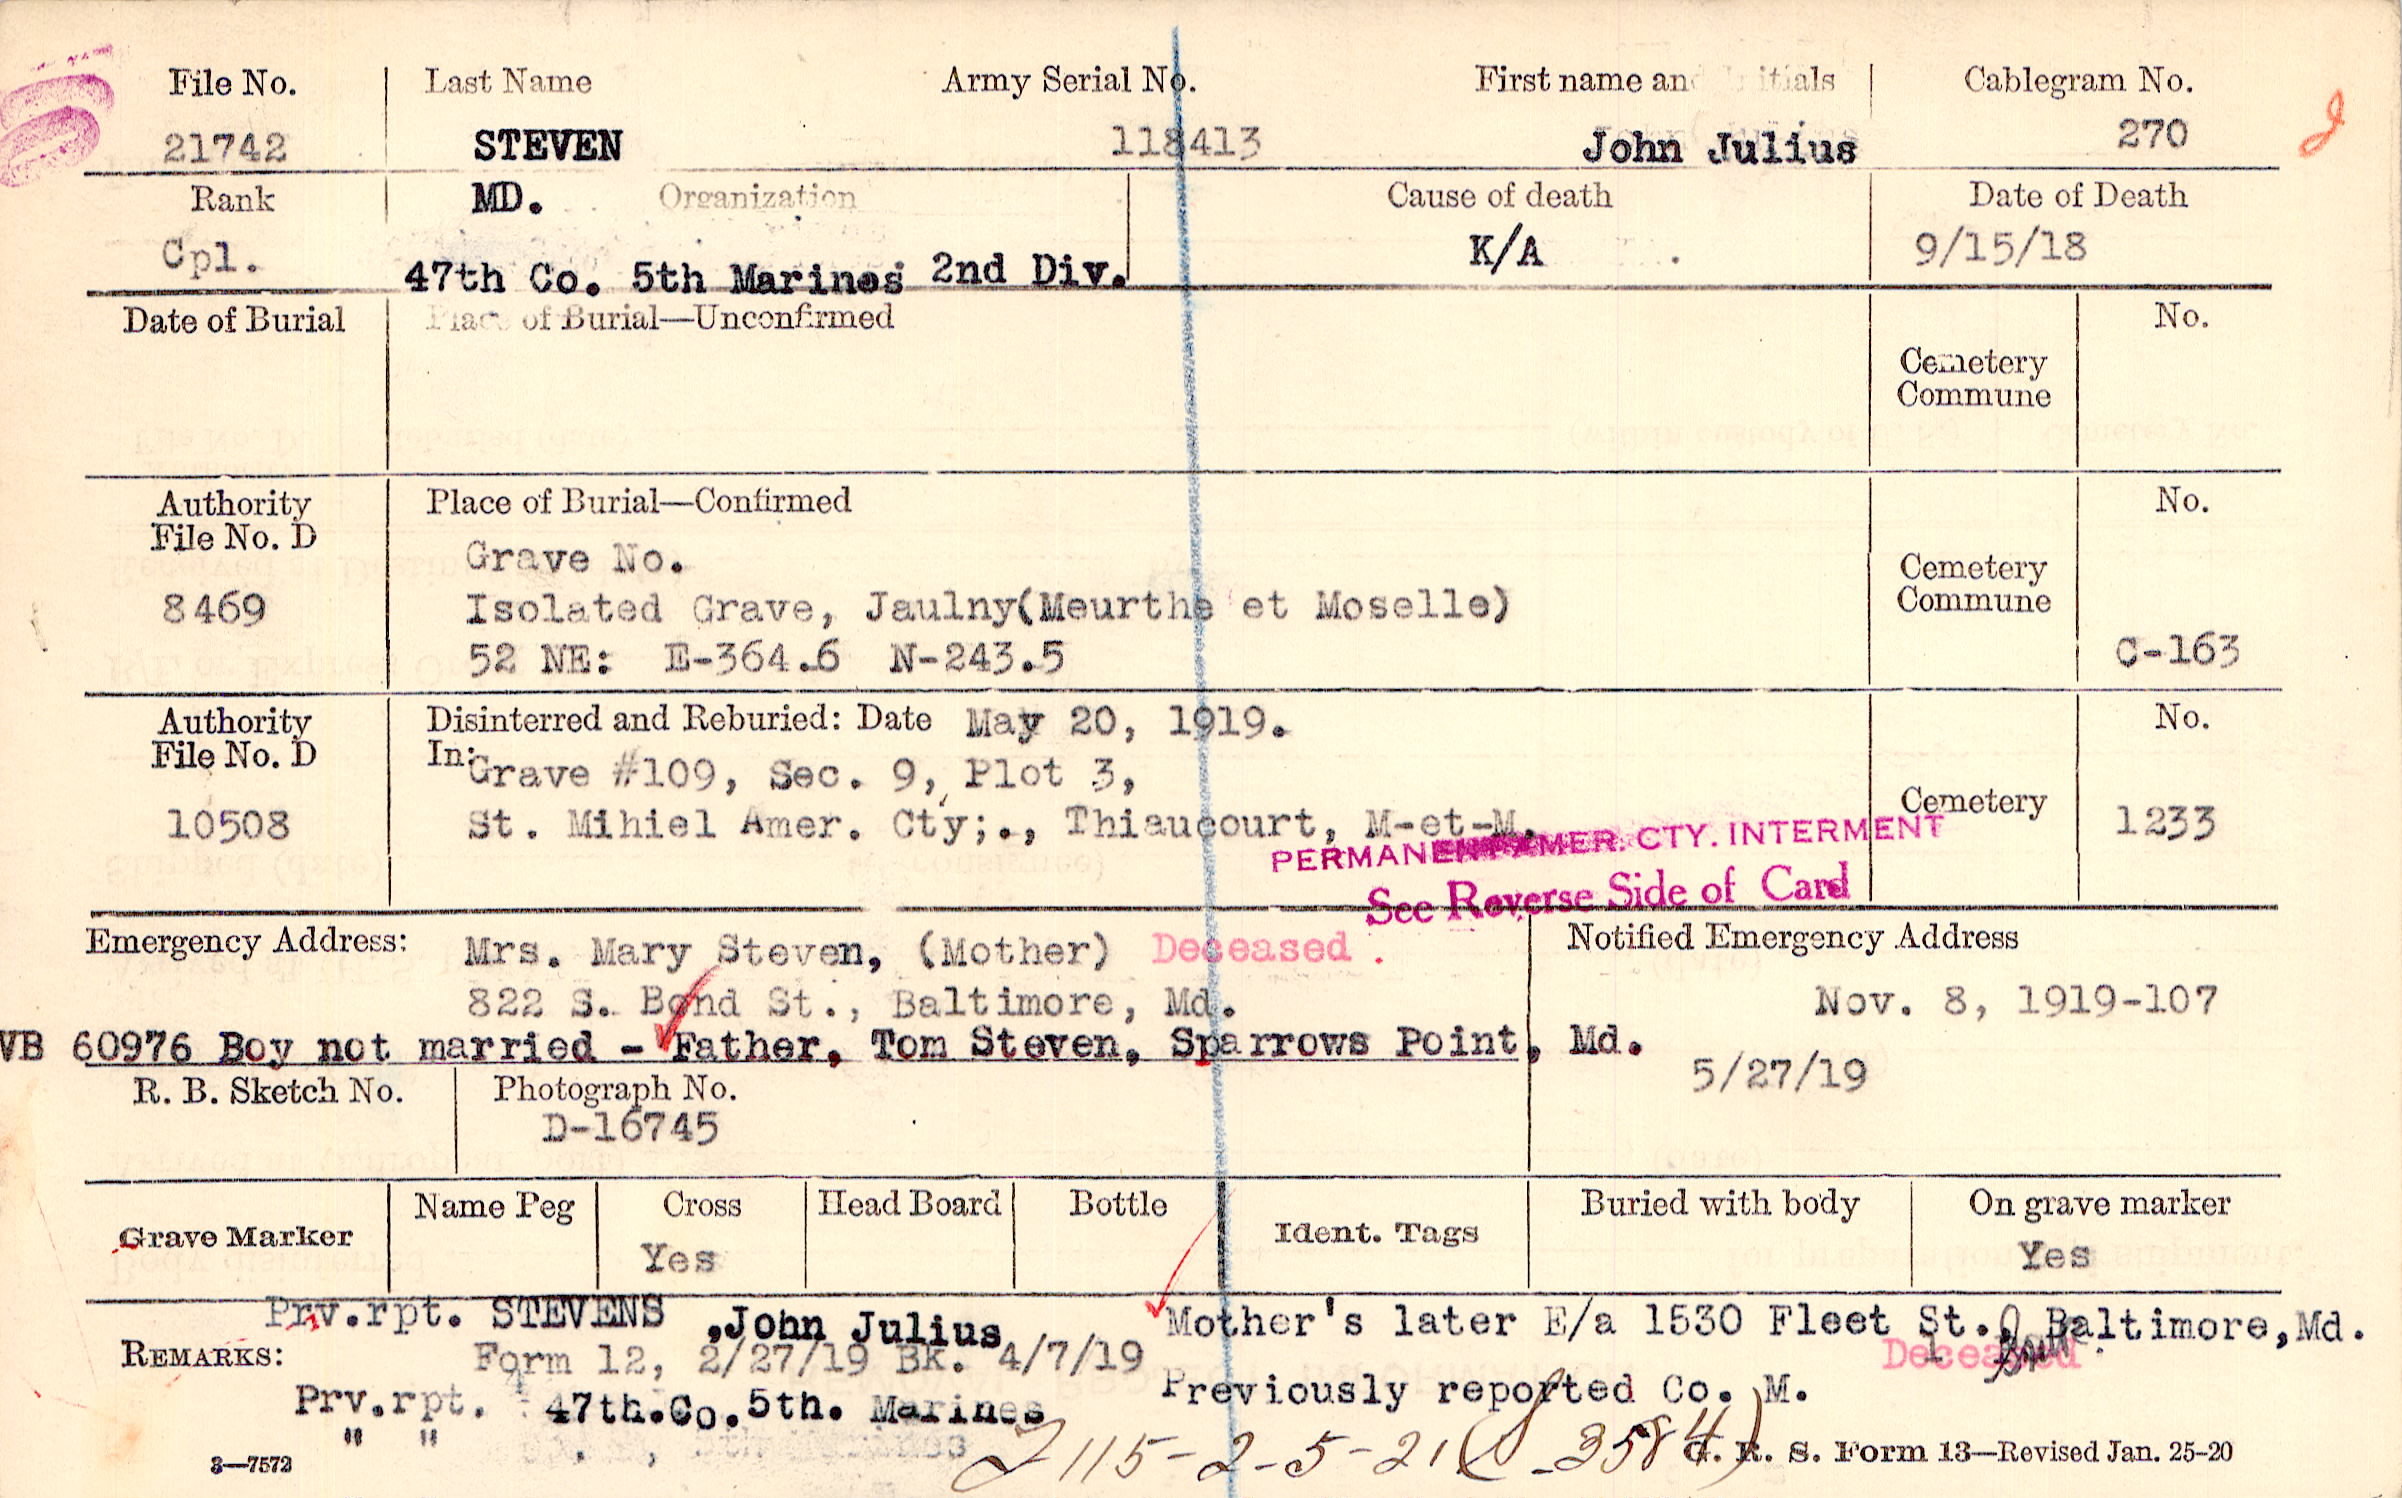 File No. Last Name Army Serial No. First name and Initials Cablegram No.
21742 STEVEN 118413 John Julius 270
Rank MD. Organization Cause of death Date of Death
Cpl. 47th Co. 5th Marines 2nd Div. K/A 9/15/18
Date of Burial Place of Burial—Unconfirmed No.
Cemetery
Commune
Authority Place of Burial—Confirmed No.
File No. D
Grave No.
Cemetery
8469 Isolated Grave, Jaulny(Meurthe et Moselle) Commune
52 NE: E-364.6 N-243.5 C-163
Authority Disinterred and Reburied: Date May 20, 1919. No.
File No. D In: Grave #109, Sec. 9, Plot 3,
Cemetery
10508 St. Mihiel Amer. Cty;., Thiaucourt, M-et-M. 1233
PERMANENT AMER. CTY. INTERMENT
See Reverse Side of Card
Emergency Address: Mrs. Mary Steven, (Mother) Deceased. Notified Emergency Address
822 S. Bond St., Baltimore, Md. Nov. 8, 1919-107
VB 60976 Boy not married - Father, Tom Steven, Sparrows Point, Md.
5/27/19
R. B. Sketch No. Photograph No.
D-16745
Grave Marker Name Peg Cross Head Board Bottle Ident. Tags Buried with body On grave marker
Yes Yes
Prv.rpt. STEVENS ,John Julius Mother's later E/a 1530 Fleet St., Baltimore,Md.
REMARKS: Form 12, 2/27/19 BK. 4/7/19 Deceased
Prv.rpt. 47th.Co.5th. Marines Previously reported Co. M.
" "
115-2-5-21 3584
3—7572 G. R. S. Form 13—Revised Jan. 25-20